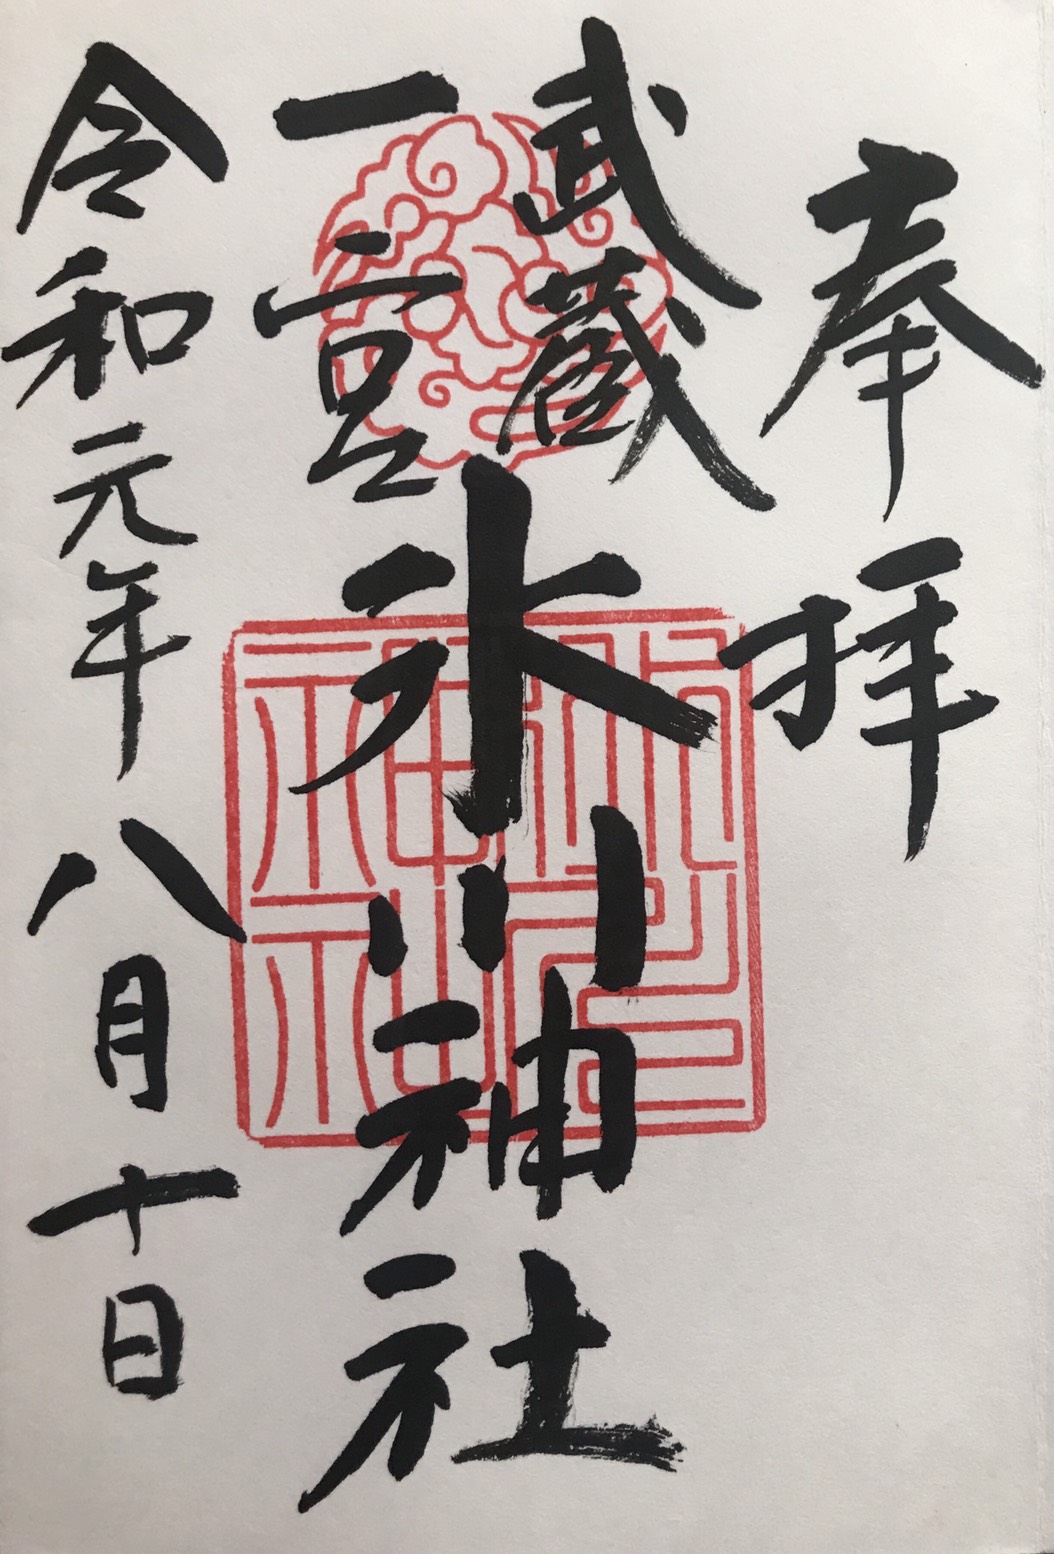 奉拝
武蔵
一宮
氷川神社
令和元年八月十日